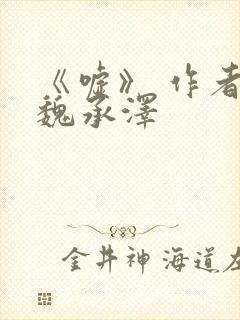 《嘘》 作者
魏承泽
金井神海道左